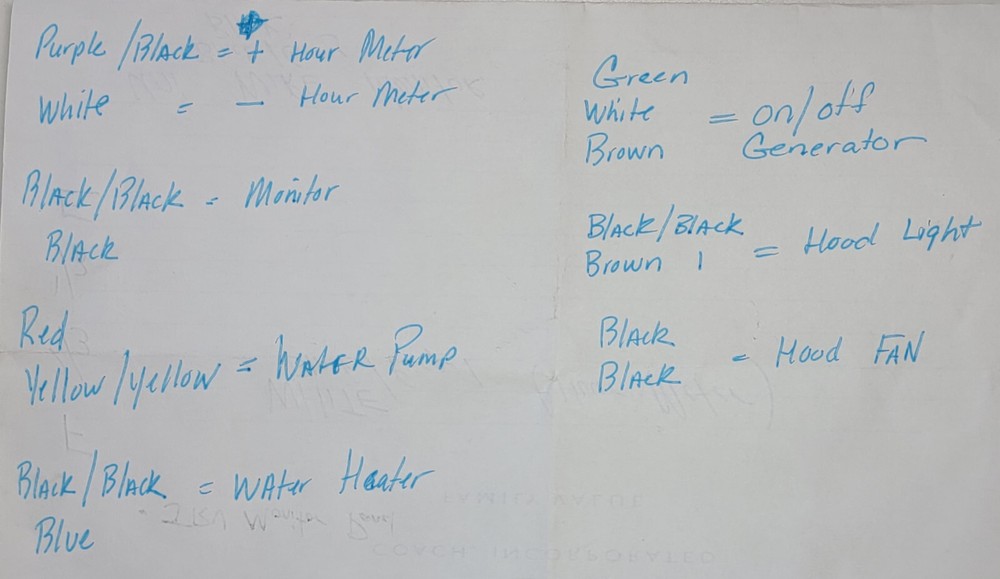 Purple/Black = + Hour Meter
White = - Hour Meter
Black/Black = Monitor
Black
Red
Yellow/Yellow = Water Pump
Black/Black = Water Heater
Blue
Green
White = on/off
Brown Generator
Black/Black
Brown = Hood Light
Black
Black = Hood FAN